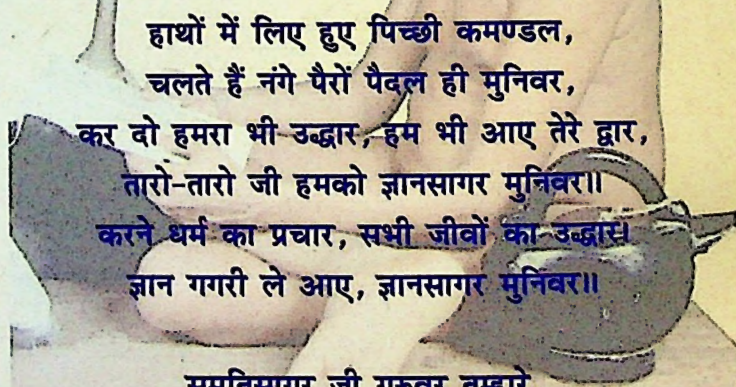 हाथों में लिए हुए पिच्छी कमण्डल,
चलते हैं नंगे पैरों पैदल ही मुनिवर,
कर दो हमरा भी उद्धार, हम भी आए तेरे द्वार,
तारो-तारो जी हमको ज्ञानसागर मुनिवर॥
करने धर्म का प्रचार, सभी जीवों का उद्धार।
ज्ञान गगरी ले आए, ज्ञानसागर मुनिवर॥
जी गुरुवर